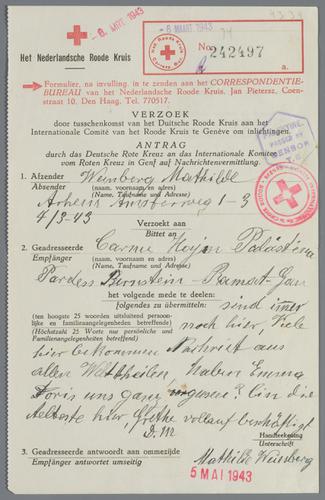 - 6. MRT. 1943
- 6 MAART 1943
Het Nederlandsche Roode Kruis
No. 242497 a.
Formulier, na invulling, in te zenden aan het CORRESPONDENTIE-
BUREAU van het Nederlandsche Roode Kruis, Jan Pietersz. Coen-
straat 10, Den Haag, Tel. 770517.
VERZOEK
door tusschenkomst van het Duitsche Roode Kruis aan het
Internationale Comité van het Roode Kruis te Genève om inlichtingen.
ANTRAG
durch das Deutsche Rote Kreuz an das Internationale Komitee
vom Roten Kreuz in Genf auf Nachrichtenvermittlung.
1. Afzender Weinberg Mathilde
Absender (naam, voornaam en adres)
(Name, Taufname und Adresse)
Arhem 1-3
4/3-43 Verzoekt aan
Bittet an
2. Geadresseerde Carmi Palästina
Empfänger (naam, voornaam en adres)
(Name, Taufname und Adresse)
Pardess Ramat-Gan
het volgende mede te deelen:
folgendes zu übermitteln: sind immer
(ten hoogste 25 woorden uitsluitend persoon-
lijke en familieaangelegenheden betreffende)
(Höchstzahl 25 Worte nur persönliche und
Familienangelegenheiten betreffend)
noch hier, Viele
hier bekommen aus
allen Weltteilen. Haben Emma
Doris uns ganz ? bin die
Aelteste hier Grethe vollauf beschäftigt
Handteekening
Unterschrift
3. Geadresseerde antwoordt aan ommezijde
Empfänger antwortet umseitig
Mathilde Weinberg
5 MAI 1943